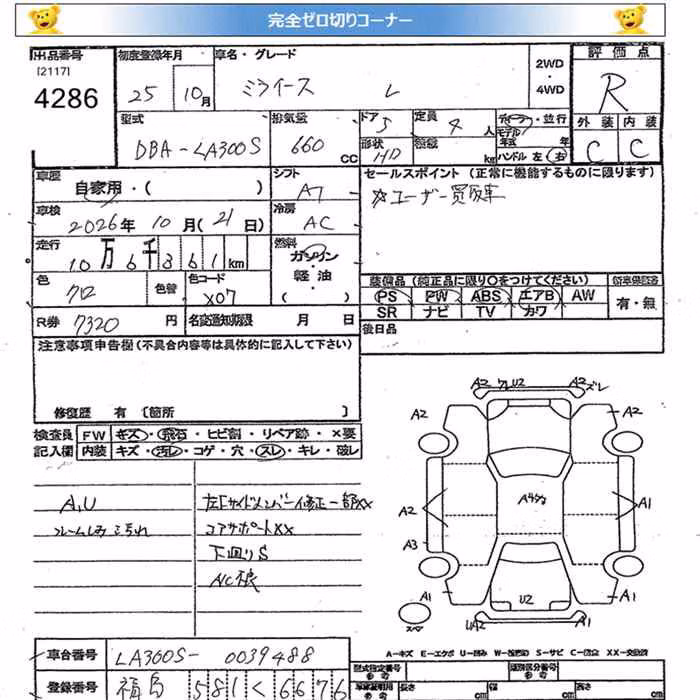 完全ゼロ切りコーナー
出品番号 初度登録年月 車名・グレード 2WD・4WD 評価点
[2117]
4286 25 10月 ミライース L R
型式 排気量 ドア 5 定員 4人 ディーラー・並行 外装 内装
DBA-LA300S 660 CC 形状 HD km ハンドル 左 右 C C
車歴 シフト セールスポイント (正常に機能するものに限ります)
自家用・( ) AT ユーザー買取車
車検 冷房
2026年 10月(21日) AC
走行 燃料
10万6千861km ガソリン
軽油
( )
色 色替 色コード 装備品 (純正品に限り○をつけてください)
クロ X07 PS PW ABS エアB AW 有・無
SR ナビ TV カワ
R券 7320 円 名変通知期限 月 日 後日品
注意事項申告欄(不具合内容等は具体的に記入して下さい)
修復歴 有 〔箇所 〕
検査員 FW キズ・飛石・ヒビ割・リペア跡・×要
記入欄 内装 キズ・汚レ・コゲ・穴・スレ・キレ・破レ
A,U 左Fサイドメンバー修正一部XX
フレームしみ こ汚れ コアサポートXX
下廻りS
A/C
A2 U2 A2 ズレ
A2 A2
A2 A1
A3
A1 A1
U2
UA2
スペア
A-キズ E-エクボ U-凹み S-サビ XX-交換済
車台番号 LA300S- 0039488
登録番号 福島 581 く 6676
型式指定番号 参考 類別区分番号 参考
長さ cm 幅 cm 高さ cm